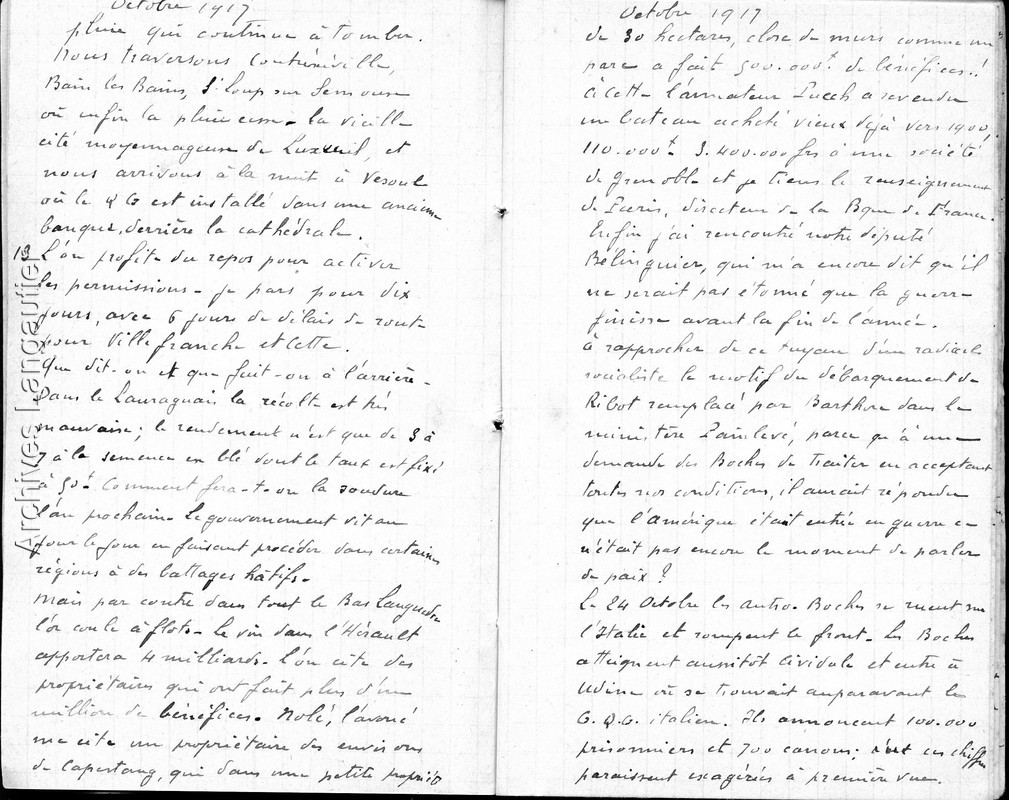 Octobre 1917
pluie qui continue à tomber.
Nous traversons Contrexéville,
Bain les Bains, St Loup sur Semouse
où enfin la pluie cesse. La vieille
cité moyennageuse de Luxeuil, et
nous arrivons à la nuit à Vesoul
où le Q G est installé dans une ancienne
banque, derrière la cathédrale.
L'on profite du repos pour activer
les permissions. Je pars pour dix
jours, avec 6 jours de délais de route
pour Villefranche et Cette.
Que dit-on et que fait-on à l'arrière.
Dans le Lauraguais la récolte est très
mauvaise; le rendement n'est que de 3 à
7 à la semence en blé dont le taux est fixé
à 50f. Comment fera-t-on la soudure
l'an prochain. Le gouvernement vit au
jour le jour en faisant procéder dans certaines
régions à des battages hâtifs.
Mais par contre dans tout le Bas Languedoc
l'or coule à flots. Le vin dans l'Hérault
apportera 4 milliards. L'on cite des
propriétaires qui ont fait plus d'un
million de bénéfices. Molé, l'avoué
me cite un propriétaire des environs
de Capestang, qui dans une petite propriété
Octobre 1917
de 30 hectares, close de murs comme un
parc a fait 500.000f de bénéfices..!
à Cette l'armateur a revendu
un bateau acheté vieux déjà vers 1900,
110.000f 3.400.000 frs à une société
de Grenoble et je tiens le renseignement
de directeur de la Bque de France.
Enfin j'ai rencontré notre député
Bélinguier, qui m'a encore dit qu'il
ne serait pas étonné que la guerre
finisse avant la fin de l'année.
à rapprocher de ce tuyau d'un radical
socialiste le motif du débarquement de
Ribot remplacé par Barthou dans le
ministère Painlevé, parce qu'à une
demande des Boches de traiter en acceptant
toutes nos conditions, il aurait répondu
que l'Amérique était entrée en guerre ce
n'était pas encore le moment de parler
de paix?
Le 24 Octobre les Austro-Boches se ruent sur
l'Italie et rompent le front. Les Boches
atteignent aussitôt Cividale et entre à
Udine où se trouvait auparavant le
G.Q.G. italien. Ils annoncent 100.000
prisonniers et 700 canons; ces chiffres
paraissent exagérés à première vue.
Archives Langautier